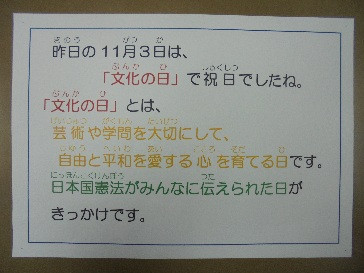 昨日の11月3日は、
「文化の日」で祝日でしたね。
「文化の日」とは、
芸術や学問を大切にして、
自由と平和を愛する心を育てる日です。
日本国憲法がみんなに伝えられた日が
きっかけです。